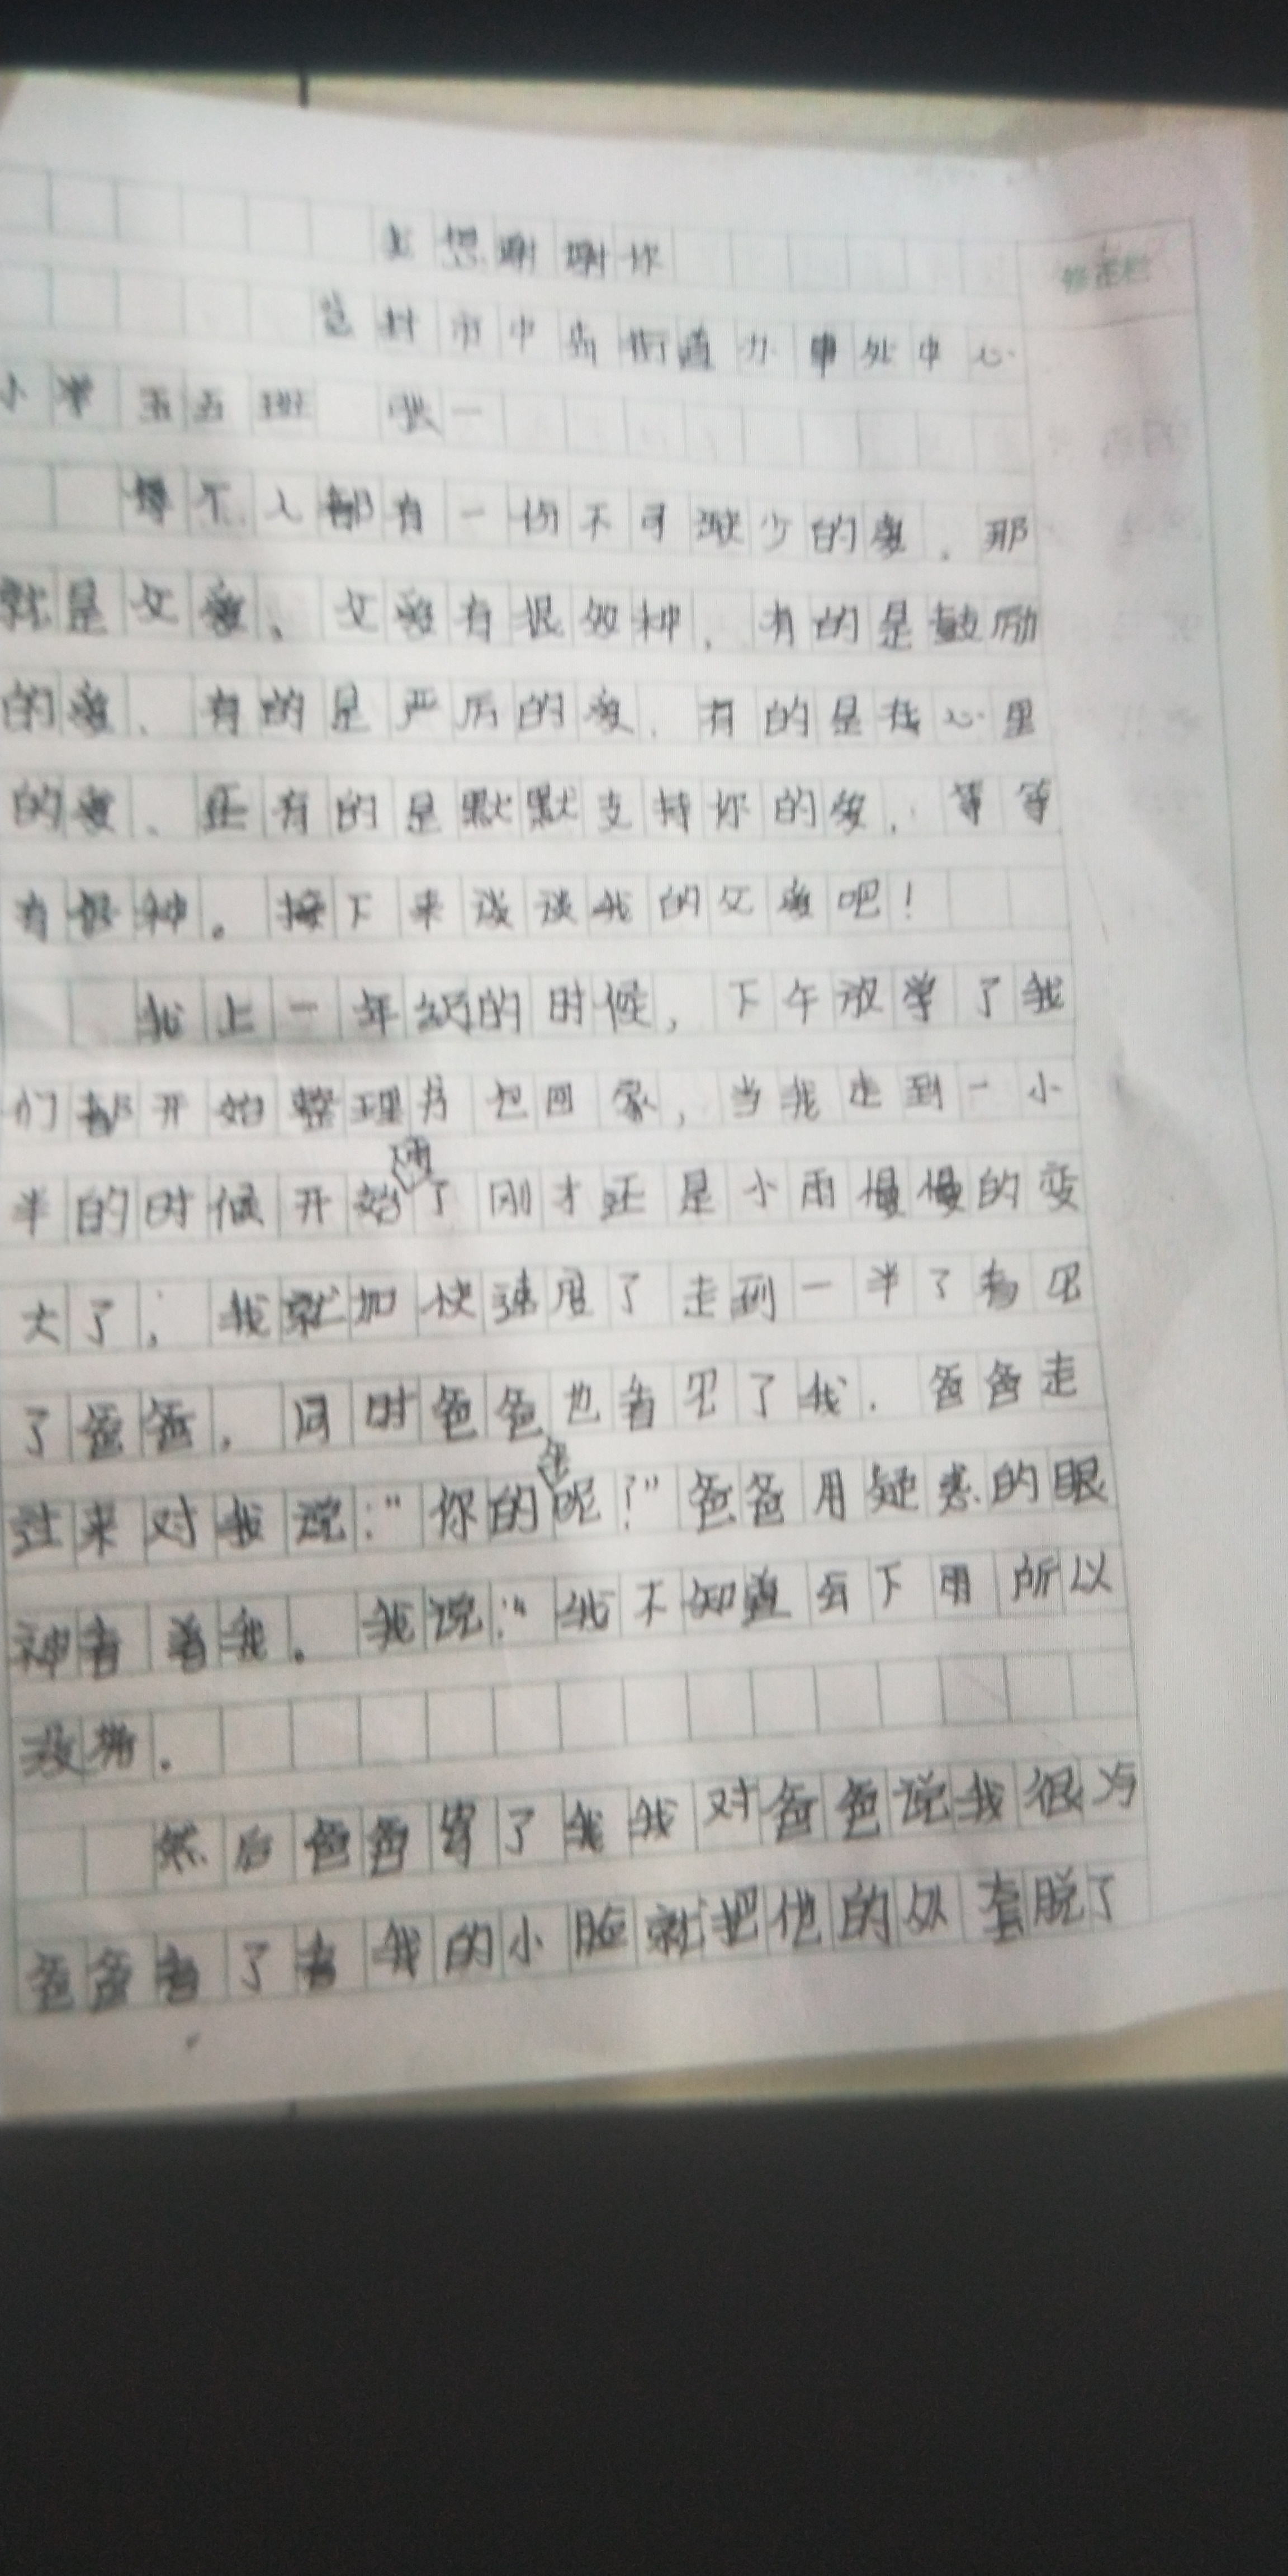 我想谢谢你
修正栏
登封市中岳街道办事处中心
小学五五班 张一
每个人都有一份不可缺少的爱，那
就是父爱。父爱有很多种，有的是鼓励
的爱、有的是严厉的爱、有的是在心里
的爱、还有的是默默支持你的爱，等等
有很种。接下来谈谈我的父爱吧！
我上一年级的时候，下午放学了我
们都开始整理书包回家，当我走到一小
半的时候开始下雨了刚才还是小雨慢慢的变
大了，我就加快速度了走到一半了看见
了爸爸，同时爸爸也看见了我．爸爸走
过来对我说："你的伞呢？"爸爸用疑惑的眼
神看着我。我说："我不知道会下雨所以
没带．
然后爸爸背了我我对爸爸说我很冷
爸爸看了看我的小脸就把他的外套脱了